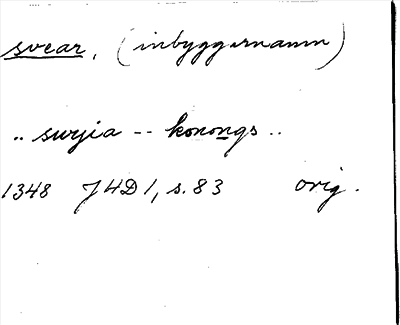 svear, (inbyggarnamn)
.. swyia -- konongs ..
1348 J4D1, s. 83 orig.